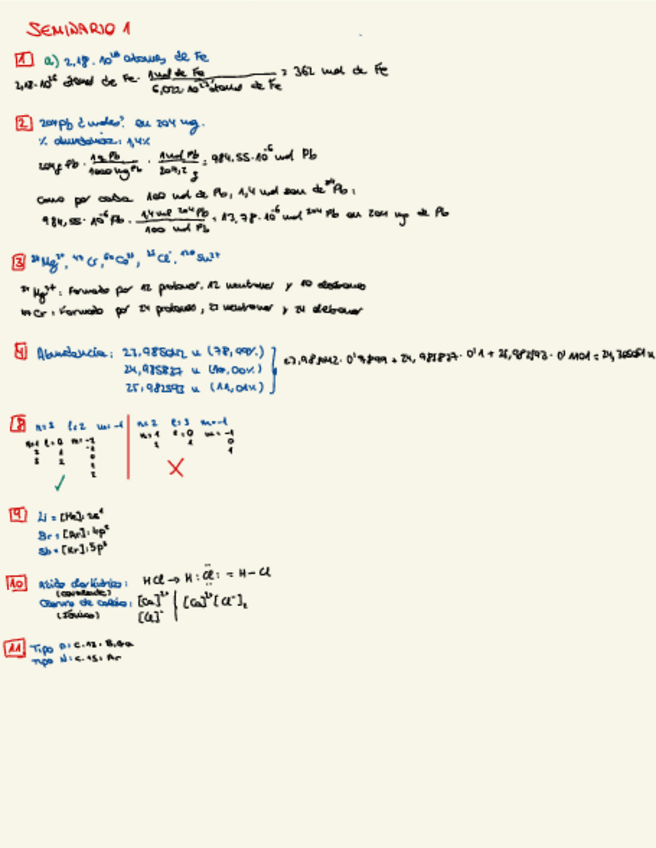 SEMINARIO 1
1 a) 2,18·10²⁶ átomos de Fe
2,18·10²⁶ átomos de Fe · 1 mol de Fe / 6,022·10²³ átomos de Fe = 362 mol de Fe
2 204Pb ¿moles? en 204 mg.
% abundancia: 1,4%
204g Pb · 1g Pb / 1000 mg Pb · 1 mol Pb / 207,2 g = 984,55·10⁻⁶ mol Pb
Como por cada 100 mol de Pb, 1,4 mol son de ²⁰⁴Pb:
984,55·10⁻⁶ Pb · 1,4 mol 204Pb / 100 mol Pb = 13,78·10⁻⁶ mol 204Pb en 204 mg de Pb
3 Mg²⁺, Cr, Co³⁺, Cl⁻, Sn²⁺
Mg²⁺: Formado por 12 protones, 12 neutrones y 10 electrones
Cr: Formado por 24 protones, 23 neutrones y 24 electrones
4 Abundancia: 23,985042 u (78,99%)
24,985837 u (10,00%)
25,982593 u (11,01%)
23,985042 · 0'7899 + 24,985837 · 0'1 + 25,982593 · 0'1101 = 24,305051 u
8 n=3 l=2 m=-1 n=2 l=3 m=-1
n=1 l=0 m=-2 n=1 l=0 m=-1
2 1 -1 2 1 0
3 2 0 1
1
2
9 Li = [He]: 2s¹
Br = [Ar]: 4p⁵
Sb = [Kr]: 5p³
10 Ácido clorhídrico: HCl → H:Cl: = H-Cl
(covalente)
Cloruro de calcio: [Ca]²⁺ [Ca]²⁺[Cl⁻]₂
(Iónico) [Cl]⁻
11 Tipo P: C.13: B, Ga
Tipo N: C.15: Ar